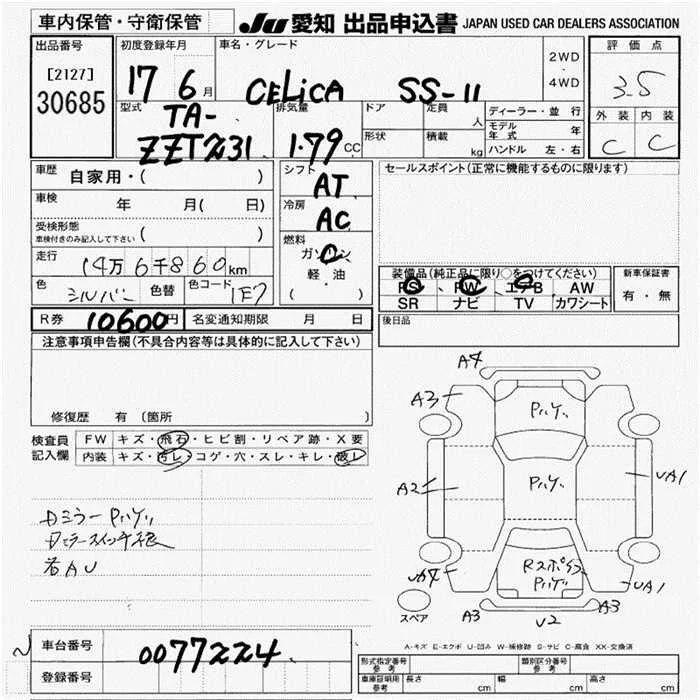 車内保管・守衛保管
JU 愛知 出品申込書 JAPAN USED CAR DEALERS ASSOCIATION
出品番号
[2127]
30685
初度登録年月
17 6月
車名・グレード
CELiCA SS-11
2WD
・
4WD
評価点
3.5
外装 内装
C C
型式
TA-
ZZT231
排気量
1.79 CC
ドア
定員
人
形状
積載
kg
ディーラー・並行
モデル年式 年
ハンドル 左・右
車歴
自家用・( )
車検
年 月( 日)
受検形態
車検付きのみ記入して下さい
( )
走行
14万6千860km
色
シルバー
色替
色コード
1E7
シフト
AT
冷房
AC
燃料
ガソリン
軽・油
( )
セールスポイント(正常に機能するものに限ります)
装備品(純正品に限り○をつけてください)
PS、PW、エアB AW
SR ナビ TV カワシート
新車保証書
有・無
R券 10600円
名変通知期限 月 日
後日品
注意事項申告欄(不具合内容等は具体的に記入して下さい)
修復歴 有 〔箇所 〕
検査員
記入欄
FW キズ・飛石・ヒビ割・リペア跡・X要
内装 キズ・汚レ・コゲ・穴・スレ・キレ・破レ
スペア
A4
A3
Pハゲ
A2
Pハゲ
UA1
Rスポイラ
Pハゲ
UA4
UA1
A3
U2
A3
A-キズ E-エクボ U-凹み W-補修跡 S-サビ C-腐食 XX-交換済
車台番号
0077224
登録番号
形式指定番号
参考
類別区分番号
参考
車庫証明用
参考
長さ cm 幅 cm 高さ cm